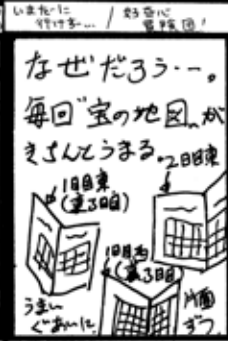 いまだに
行けず… / 好奇心
冒険団!
なぜだろう…。
毎回"宝の地図"が
きちんとうまる。
2日目東
1日目東
(東3日目)
1日目西
(東3日目)
うまい
ぐあいに。
片面
ずつ